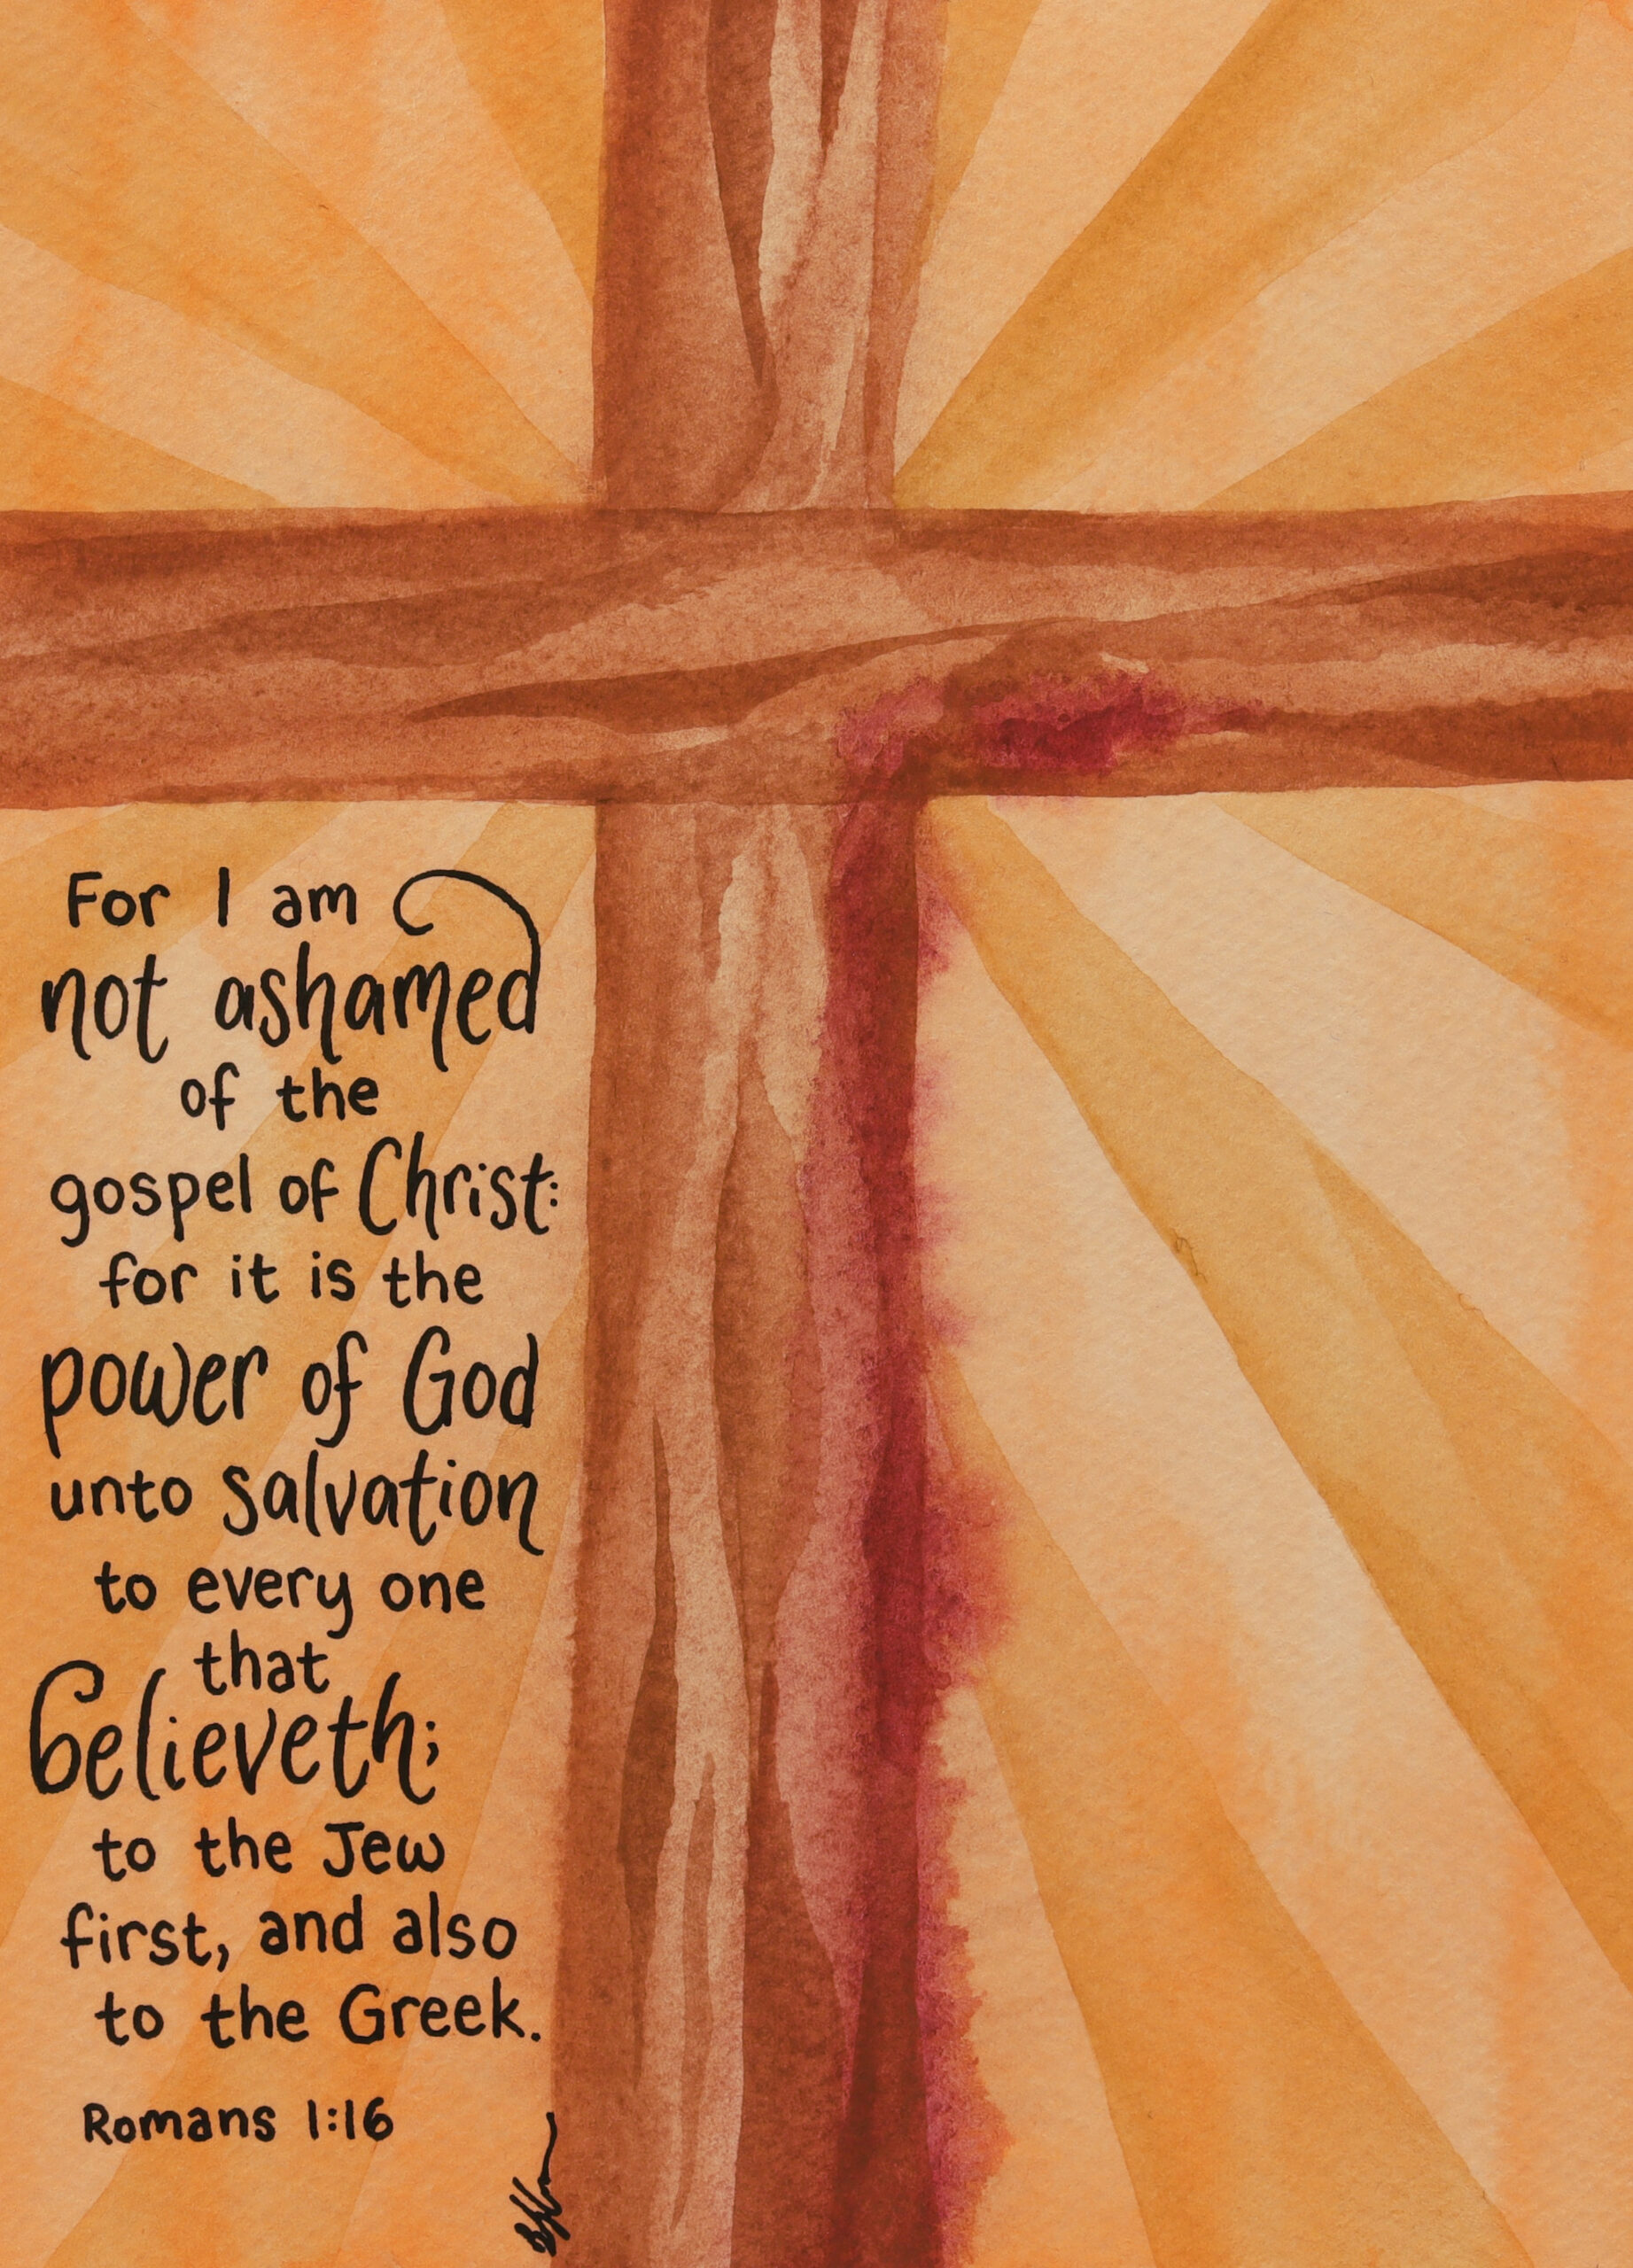 For I am
not ashamed
of the
gospel of Christ:
for it is the
power of God
unto salvation
to every one
that
believeth;
to the Jew
first, and also
to the Greek.
Romans 1:16